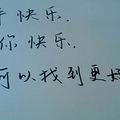 快乐.
你快乐.
可以找到更